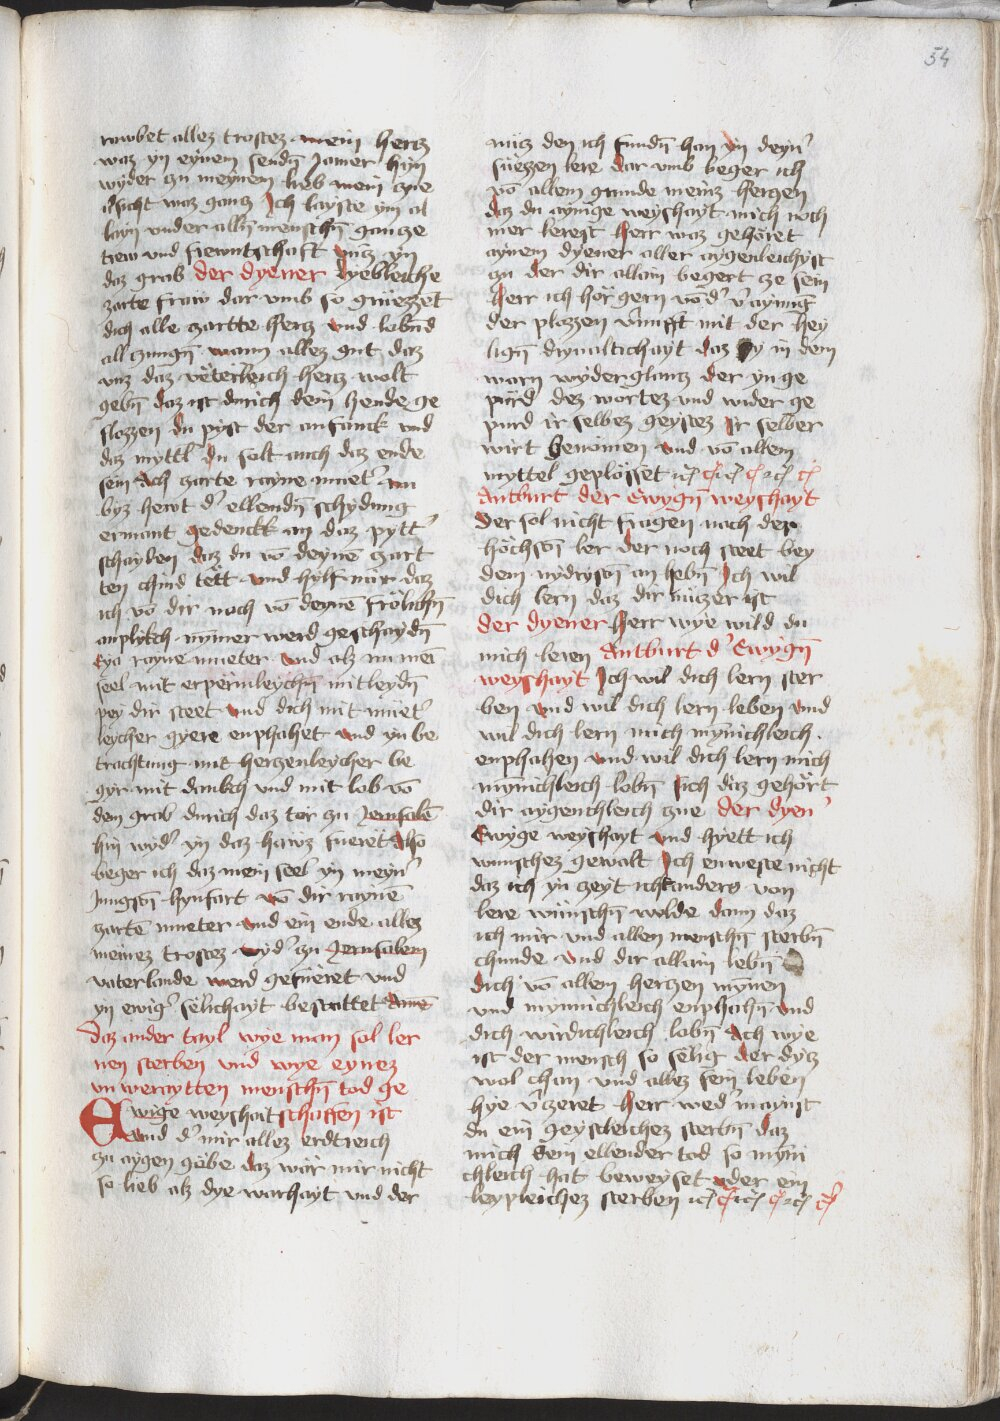 54
rawbet allez trostez mein hercz
waz yn eynem sendn̄ Jamer hyn
wyder zu meynem lieb mein zue
v̓sicht waz gancz Ich layste ym al
layn vnder alln̄ menschn̄ gancze
trew vnd frewntschaft vncz yn
daz grab der dyener lyebleiche
zarte fraw dar vmb so grüezzet
dich alle zartte hercz vnd lobnd
all zungn̄ wann allez gut daz
vnz daz veterleich hercz wolt
gebn̄ daz ist durich dein hende ge
flozzen du pyst der anfanck vnd
daz myttl du solt auch daz ende
sein Ach zarte rayne muet̓ nu
byz hewt d̓ ellendn̄ schydung
ermant gedenckk an daz pytt̓
schayden daz du vō deynē zart
ten chind tett vnd hylf mir daz
ich vō dir noch vō deynē frölichn̄
anplykch nymer werd geschaydn̄
Eya rayne mueter vnd alz nu mein
seel mit erpermleychn̄ mitleydn̄
pey dir steet vnd dich mit müet̓
leycher gyere enphahet vnd yn be
trachtung mit herczenleycher be
gyr mit dankch vnd mit lob vō
dem grab durich daz tor zu Jerusalē
hin wyd̓ yn daz hawz fueret Also
beger ich daz mein seel yn meyn̓
Jungstn̄ hynfart vō dir raynē
zartē mueter vnd ein ende allez
meinez trostez wyd̓ zu Jerusalem
vaterlande werd gefüeret vnd
yn ewig̓ sëlichayt bestattet Amē
Daz ander tayl wye man sol ler
nen sterben vnd wye eynez
vnweraytten menschn̄ tod ge
Ewige weyshait schaffen ist
vnd d̓ mir allez erdtreich
zu aygen gäbe daz wär mir nicht
so lieb alz dye warhayt vnd der
nücz den ich fundn̄ han yn deyn̓
süezzen lere dar vmb beger ich
vō allem grunde meinz herczen
daz du aynige weyshayt mich noch
mer lerest Herr waz gehöret
aynem dyener aller aygenleichyst
zu der dir allain begert ze sein
Herr ich hör gern vō d̓ v̓aynung
der plozzen v̓nufft mit der hey
lign̄ drynaltichayt daz sy in dem
warn wyderglancz der ynge
purd dez wortez vnd wider ge
purd ir selbez geystez ir selber
wirt benomen vnd vō allem
myttel geplösset
Antburt der Ewygn̄ weyshayt
Der sol nicht fragen noch der
höchstn̄ ler der noch steet bey
dem nydrystn̄ an hebn̄ Ich wil
dich lern daz dir nüczer ist
der dyener Herr wye wild du
mich leren Antburt d̓ Ewygn̄
weyshayt Ich wil dich lern ster
ben vnd wil dich lern leben vnd
wil dich lern mich mynnichleich
enphahen vnd wil dich lern mich
mynnichleich lobn̄ sich diz gehört
dir aygenchleich zue der dyen̓
Ewyge weyshayt vnd hyett ich
wunschez gewalt Ich enweste nicht
daz ich yn zeyt icht anders von
lere wünschn̄ wolde dann daz
ich mir vnd allen menschn̄ sterbn̄
chunde vnd dir allain lebn̄
dich vō allem herczen mynen
vnd mynnichleich enphahn̄ vnd
dich wirdichleich lobn̄ Ach wye
ist der mensch so sëlig der dycz
wol chan vnd allez sein leben
hye v̓zeret Herr wed̓ maynst
du ein geystleichez sterbn̄ daz
mich dein ellender tod so mynni
chleich hat beweyset oder ein
leypleichez sterben